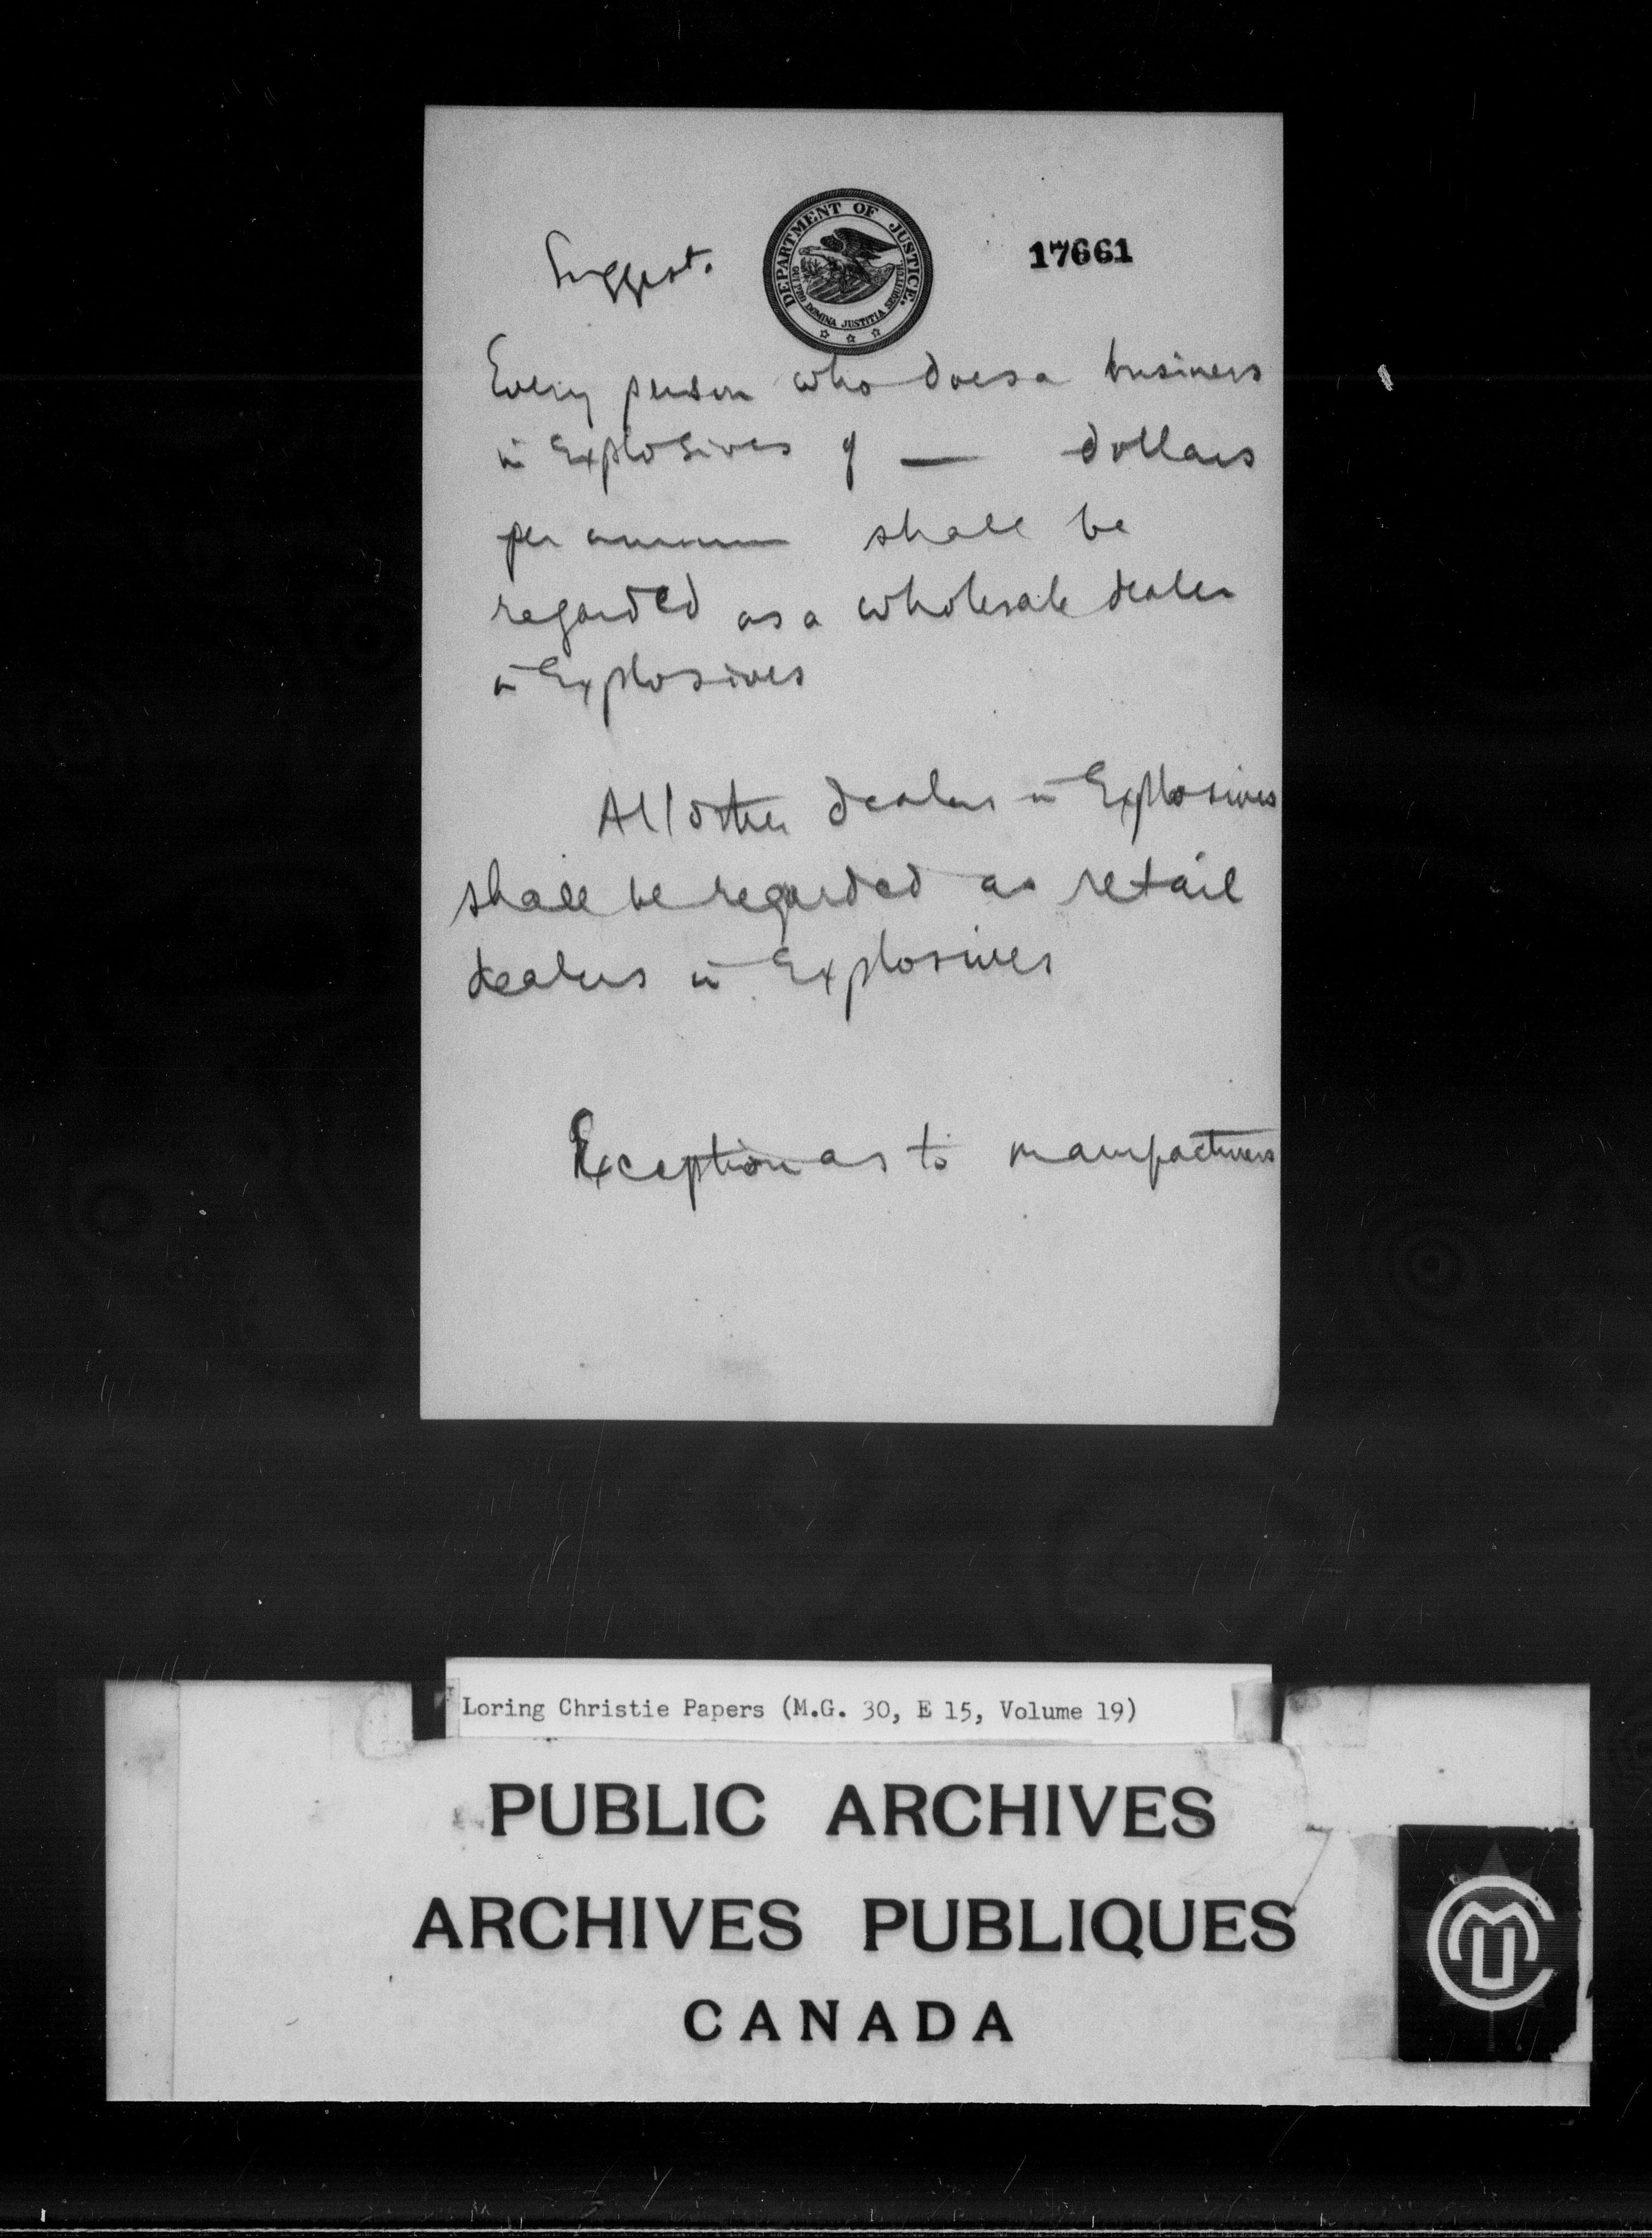 Suggest.
DEPARTMENT OF JUSTICE.
QUI PRO DOMINA JUSTITIA SEQUITUR
17661
Every person who does a business
in Explosives of — dollars
per annum shall be
regarded as a wholesale dealer
in Explosives
All other dealers in Explosives
shall be regarded as retail
dealers in Explosives
Exception as to manufacturers
Loring Christie Papers (M.G. 30, E 15, Volume 19)
PUBLIC ARCHIVES
ARCHIVES PUBLIQUES
CANADA